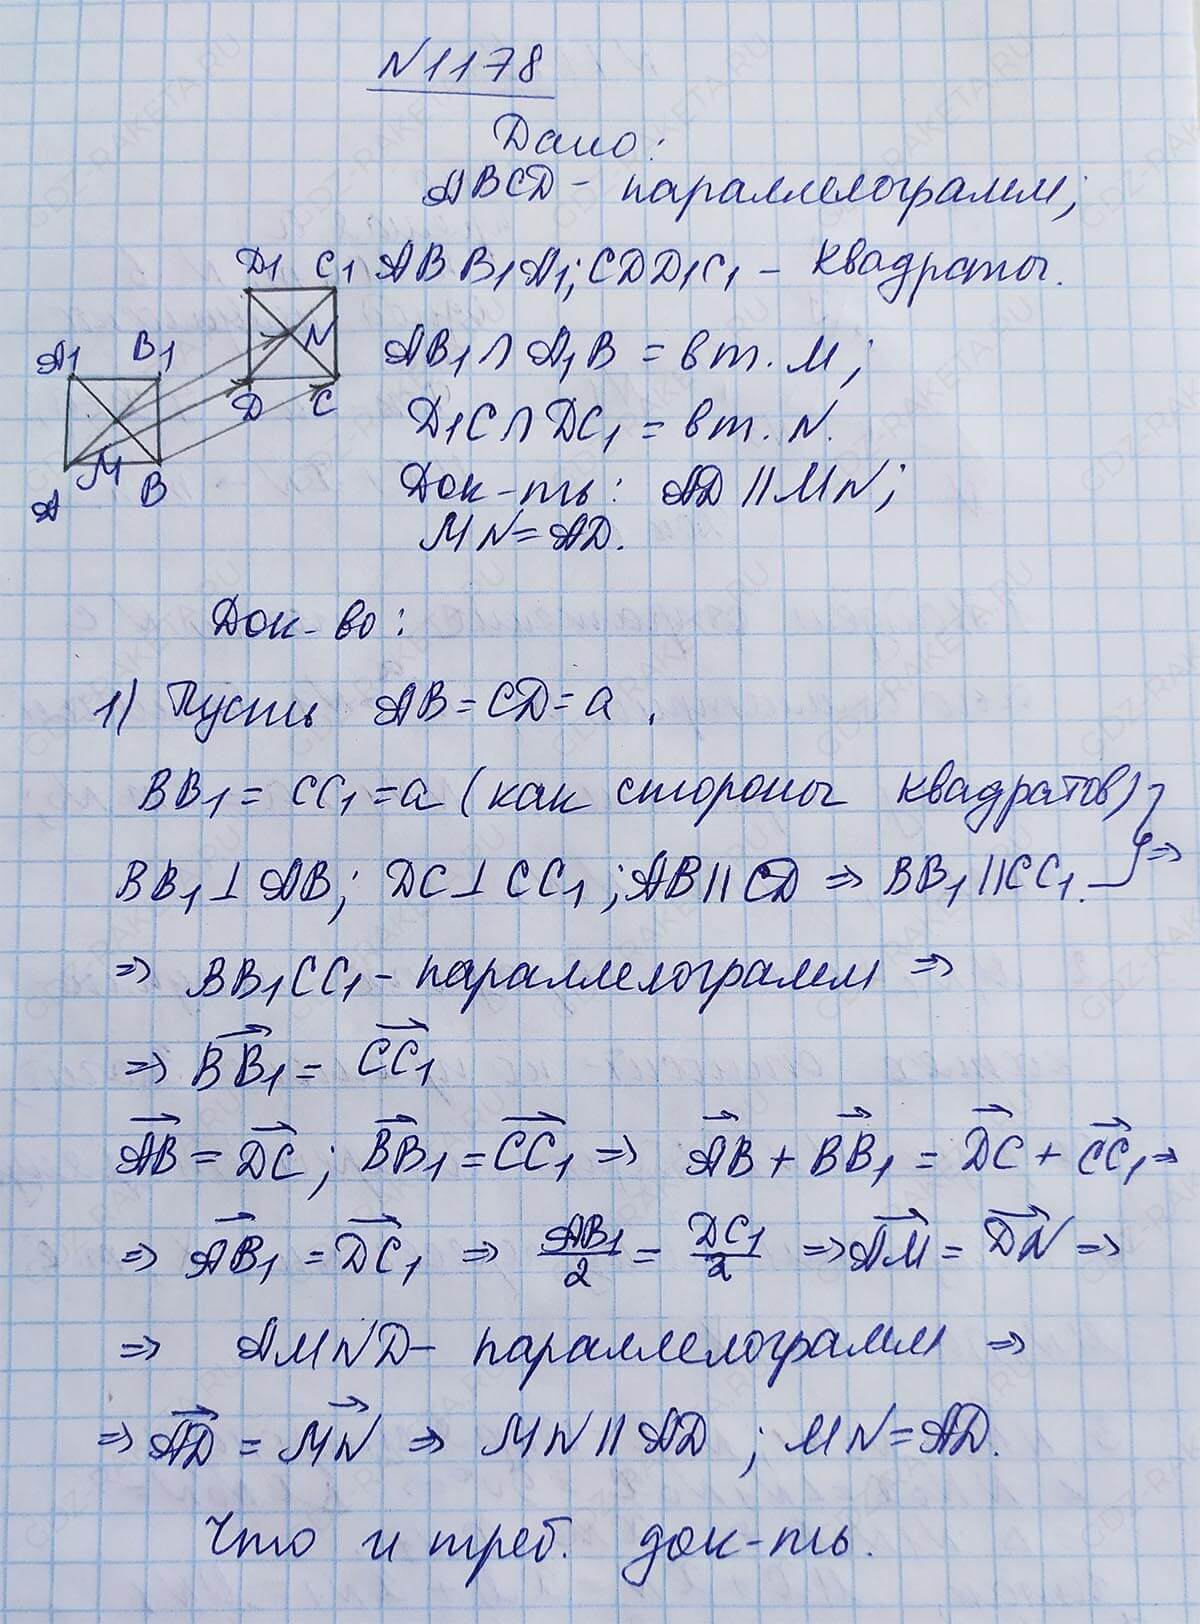 N1178
Дано:
ABCD - параллелограмм;
D1 C1 ABB1A1; CDD1C1 - квадраты.
A1 B1 N AB1 ∩ A1B = в т. M;
D C D1C ∩ DC1 = в т. N.
M Док-ть: AD || MN;
A B MN = AD.
Док-во:
1) Пусть AB = CD = a.
BB1 = CC1 = a (как стороны квадратов) }
BB1 ⊥ AB; DC ⊥ CC1; AB || CD => BB1 || CC1. } =>
=> BB1CC1 - параллелограмм =>
=> BB1 = CC1
AB = DC; BB1 = CC1 => AB + BB1 = DC + CC1 =>
=> AB1 = DC1 => AB1/2 = DC1/2 => AM = DN =>
=> AMND - параллелограмм =>
=> AD = MN => MN || AD; MN = AD.
Что и треб. док-ть.
GDZ-RAKETA.RU